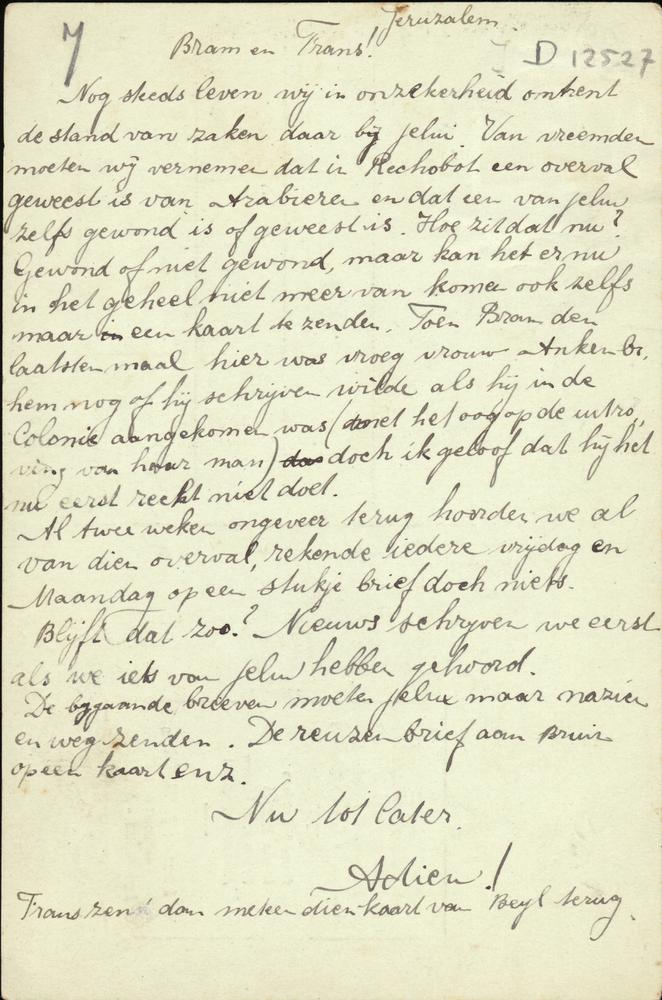 7
Jeruzalem.
Bram en Frans!
D 12527
Nog steeds leven wij in onzekerheid omtrent
de stand van zaken daar bij jelui. Van vreemden
moeten wij vernemen dat in Rechobot een overval
geweest is van Arabieren en dat een van jelui
zelfs gewond is of geweest is. Hoe zit dat nu?
Gewond of niet gewond, maar kan het er nu
in het geheel niet meer van komen ook zelfs
maar in een kaart te zenden. Toen Bram den
laatsten maal hier was vroeg vrouw Ankenbr.
hem nog of hij schrijven wilde als hij in de
Colonie aangekomen was (met het oog op de uitro,
ving van haar man) das doch ik geloof dat hij het
nu eerst recht niet doet.
Al twee weken ongeveer terug hoorden we al
van dien overval, rekende iedere vrijdag en
Maandag op een stukje brief doch niets.
Blijft dat zoo? Nieuws schrijven we eerst
als we iets van jelui hebben gehoord.
De bijgaande brieven moeten jelui maar nazien
en weg zenden. De reuzenbrief aan Bruin
op een kaart enz.
Nu tot later.
Adieu!
Frans zend dan meteen dien kaart van Beyl terug.